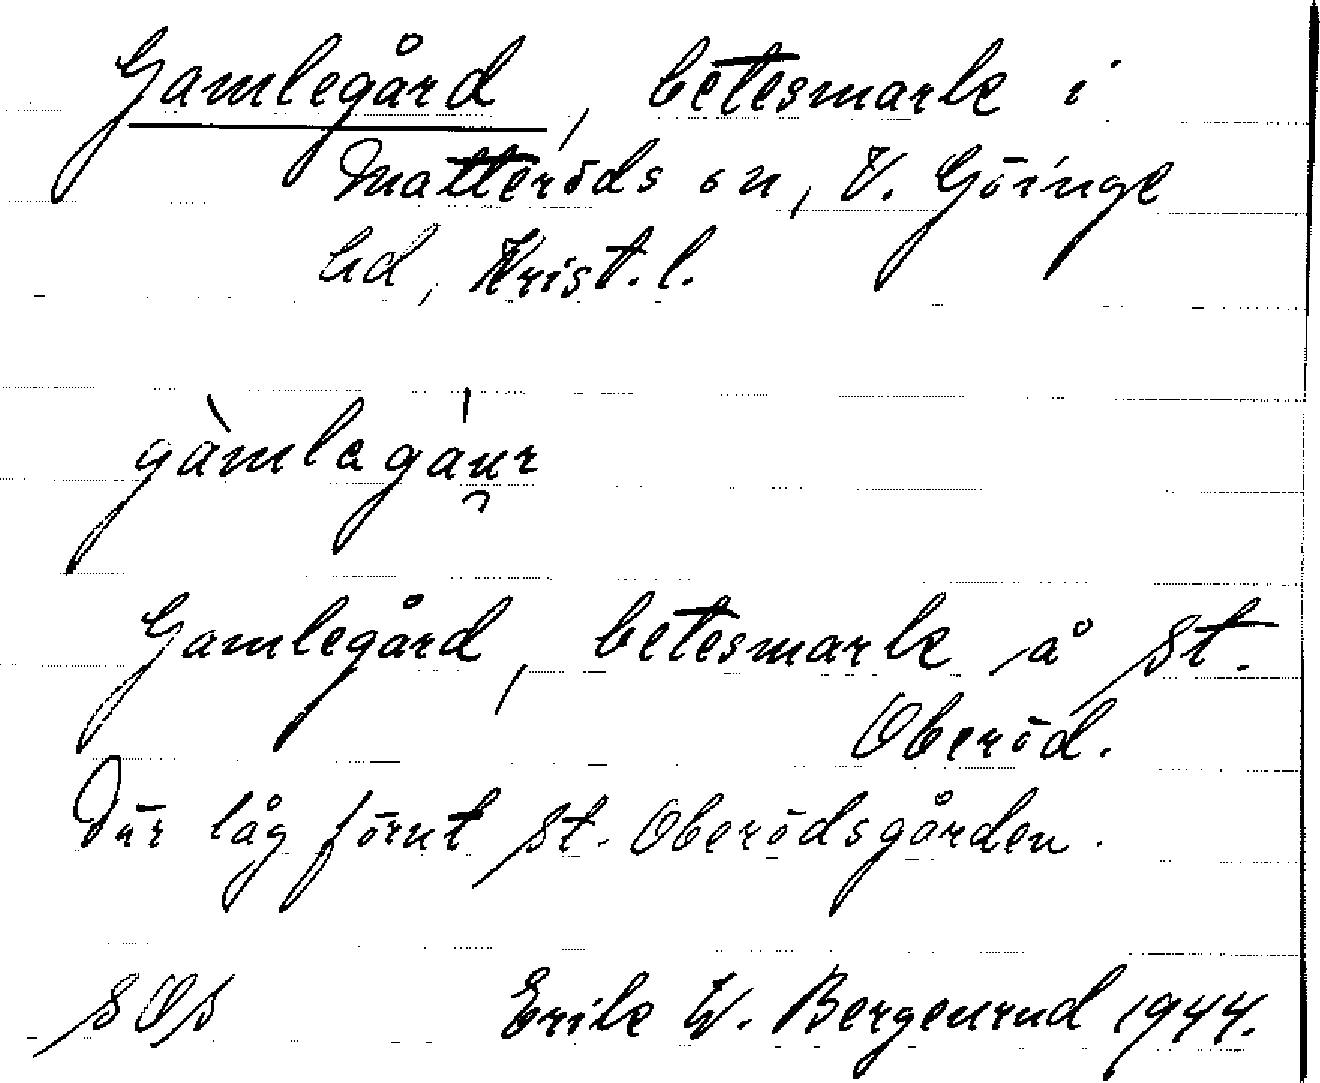 Gamlegård, betesmark i
Matteröds sn, V. Göinge
hd, Krist. l.
gàmlagáu̯r
Gamlegård, betesmark å St.
Oberöd.
Där låg förut St. Oberödsgården.
sOs Erik W. Bergenrud 1944.